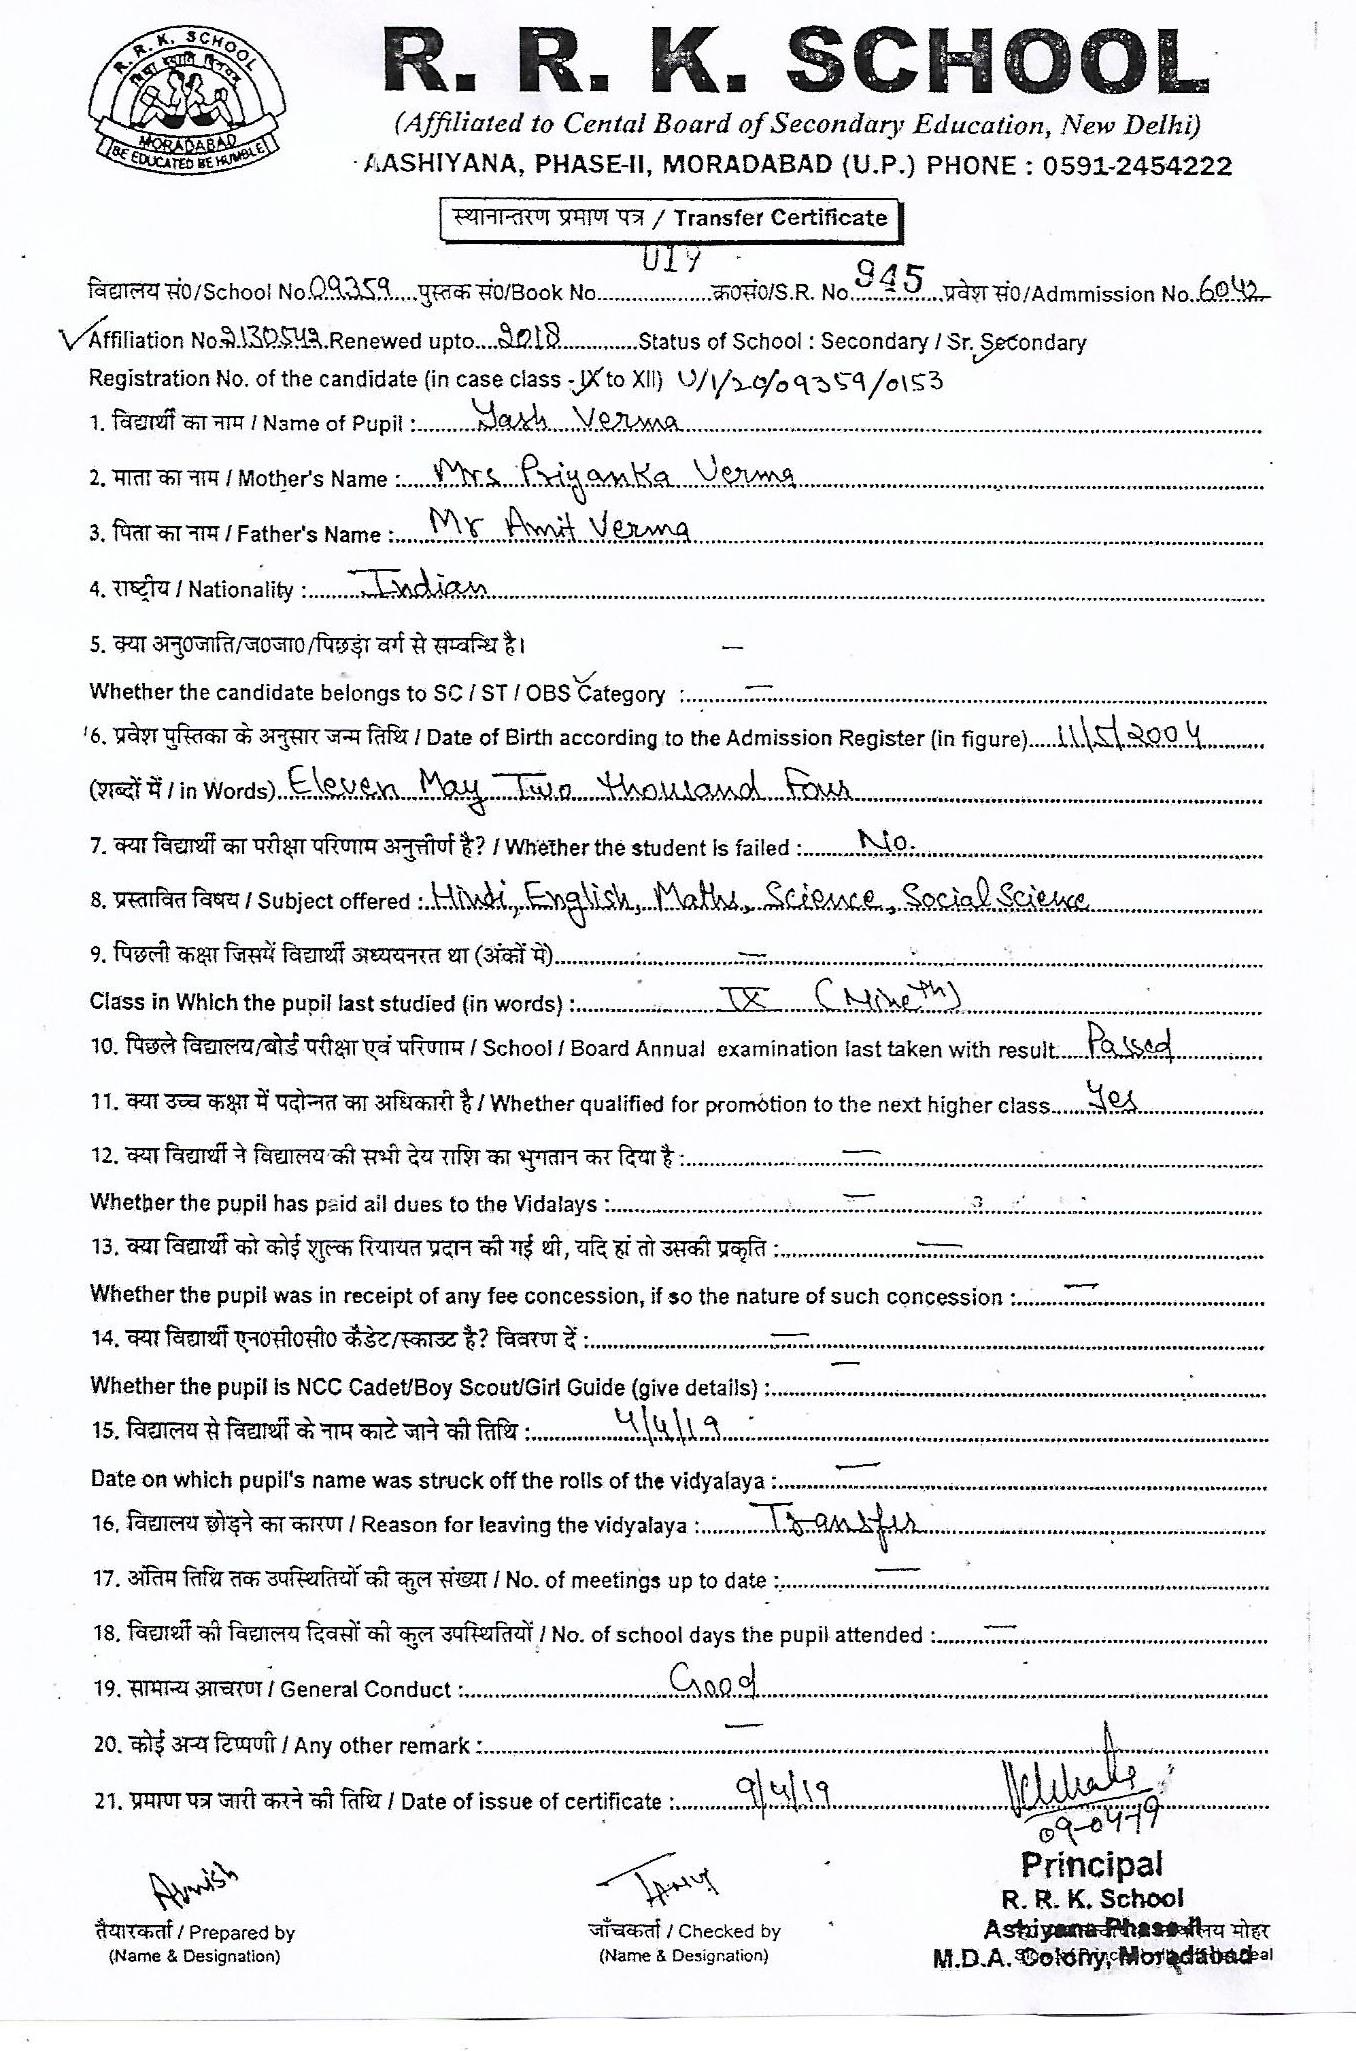 R. R. K. SCHOOL
विद्या ददाति विनयम्
MORADABAD
BE EDUCATED BE HUMBLE
R. R. K. SCHOOL
(Affiliated to Cental Board of Secondary Education, New Delhi)
AASHIYANA, PHASE-II, MORADABAD (U.P.) PHONE : 0591-2454222
स्थानान्तरण प्रमाण पत्र / Transfer Certificate
विद्यालय सं0/School No. 09359 पुस्तक सं0/Book No. 019 क्र0सं0/S.R. No. 945 प्रवेश सं0/Admmission No. 6042
Affiliation No. 2130542 Renewed upto 2018 Status of School : Secondary / Sr. Secondary
Registration No. of the candidate (in case class - IX to XII) U/1/20/09359/0153
1. विद्यार्थी का नाम / Name of Pupil : Yash Verma
2. माता का नाम / Mother's Name : Mrs Priyanka Verma
3. पिता का नाम / Father's Name : Mr Amit Verma
4. राष्ट्रीय / Nationality : Indian
5. क्या अनु0जाति/ज0जा0/पिछड़ा वर्ग से सम्वन्धि है। —
Whether the candidate belongs to SC / ST / OBS Category : —
6. प्रवेश पुस्तिका के अनुसार जन्म तिथि / Date of Birth according to the Admission Register (in figure) 11/5/2004
(शब्दों में / in Words) Eleven May Two thousand Four
7. क्या विद्यार्थी का परीक्षा परिणाम अनुत्तीर्ण है? / Whether the student is failed : No.
8. प्रस्तावित विषय / Subject offered : Hindi, English, Maths, Science, Social Science
9. पिछली कक्षा जिसमें विद्यार्थी अध्ययनरत था (अंकों में) —
Class in Which the pupil last studied (in words) : IX (Nineth)
10. पिछले विद्यालय/बोर्ड परीक्षा एवं परिणाम / School / Board Annual examination last taken with result Passed
11. क्या उच्च कक्षा में पदोन्नत का अधिकारी है / Whether qualified for promotion to the next higher class Yes
12. क्या विद्यार्थी ने विद्यालय की सभी देय राशि का भुगतान कर दिया है : —
Whether the pupil has paid all dues to the Vidalays : —
13. क्या विद्यार्थी को कोई शुल्क रियायत प्रदान की गई थी, यदि हां तो उसकी प्रकृति : —
Whether the pupil was in receipt of any fee concession, if so the nature of such concession : —
14. क्या विद्यार्थी एन0सी0सी0 कैडेट/स्काउट है? विवरण दें : —
Whether the pupil is NCC Cadet/Boy Scout/Girl Guide (give details) : —
15. विद्यालय से विद्यार्थी के नाम काटे जाने की तिथि : 4/4/19
Date on which pupil's name was struck off the rolls of the vidyalaya : —
16. विद्यालय छोड़ने का कारण / Reason for leaving the vidyalaya : Transfer
17. अंतिम तिथि तक उपस्थितियों की कुल संख्या / No. of meetings up to date : —
18. विद्यार्थी की विद्यालय दिवसों की कुल उपस्थितियों / No. of school days the pupil attended : —
19. सामान्य आचरण / General Conduct : Good
20. कोई अन्य टिप्पणी / Any other remark : —
21. प्रमाण पत्र जारी करने की तिथि / Date of issue of certificate : 9/4/19
09-04-19
Principal
R. R. K. School
Ashiyana Phase-II
M.D.A. Colony, Moradabad
तैयारकर्ता / Prepared by
(Name & Designation)
जाँचकर्ता / Checked by
(Name & Designation)